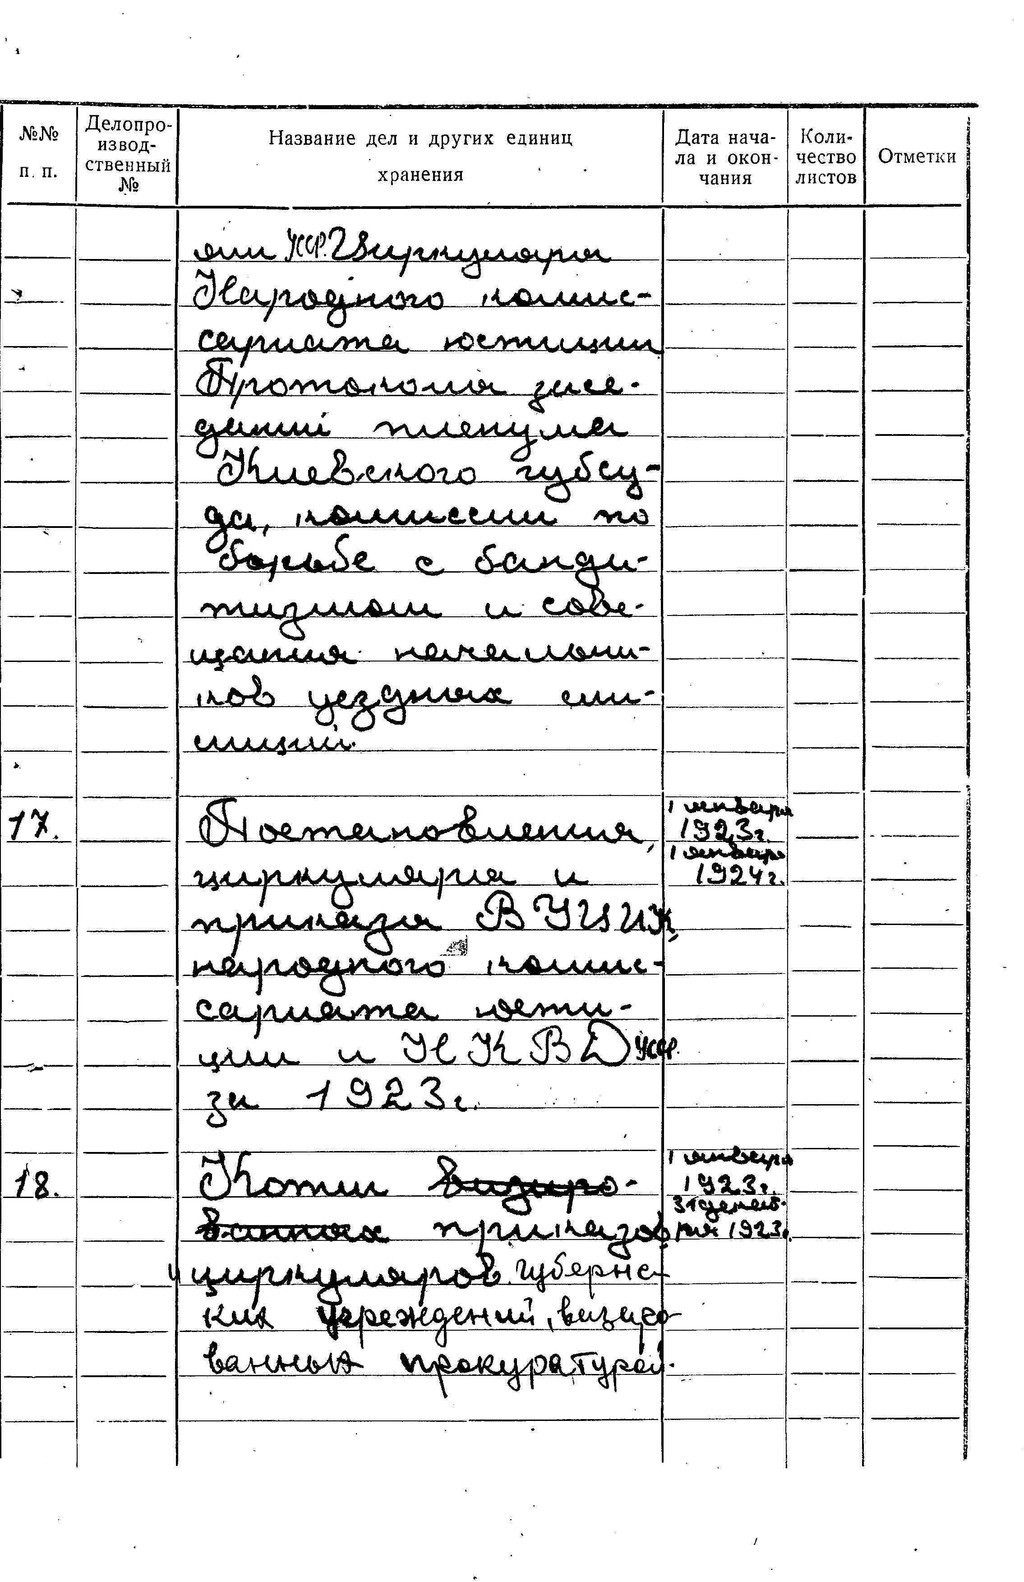 №№ п. п.
Делопроизводственный №
Название дел и других единиц хранения
Дата начала и окончания
Количество листов
Отметки
УССР. Циркуляры
Народного комис-
сариата юстиции
Протоколы засе-
даний пленума
Киевского губсу-
да, комиссии по
борьбе с банди-
тизмом и сове-
щания начальни-
ков уездных ми-
лиций.
17.
Постановления,
циркуляры и
приказы ВУЦИК,
народного комис-
сариата юсти-
ции и НКВД УССР
за 1923г.
1 января
1923г.
1 января
1924г.
18.
Копии визиро-
ванных приказов
и циркуляров губернс-
ких учреждений, визиро
ванных прокуратурой.
1 января
1923г.
31 декаб-
ря 1923г.